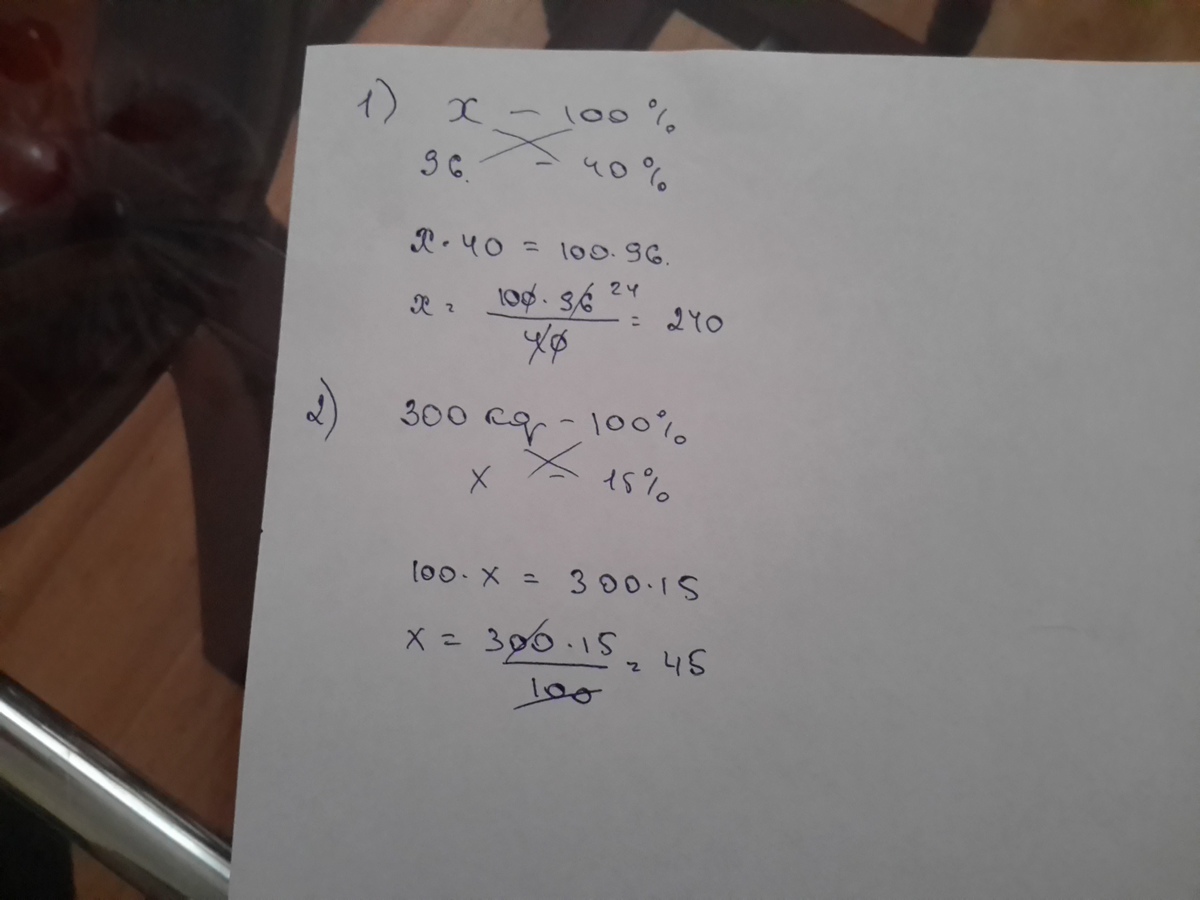 1) x - 100%
96. - 40%
x · 40 = 100 · 96.
x = 100 · 96 24 / 40 = 240
2) 300 kq - 100%
x - 15%
100 · x = 300 · 15
x = 300 · 15 / 100 = 45